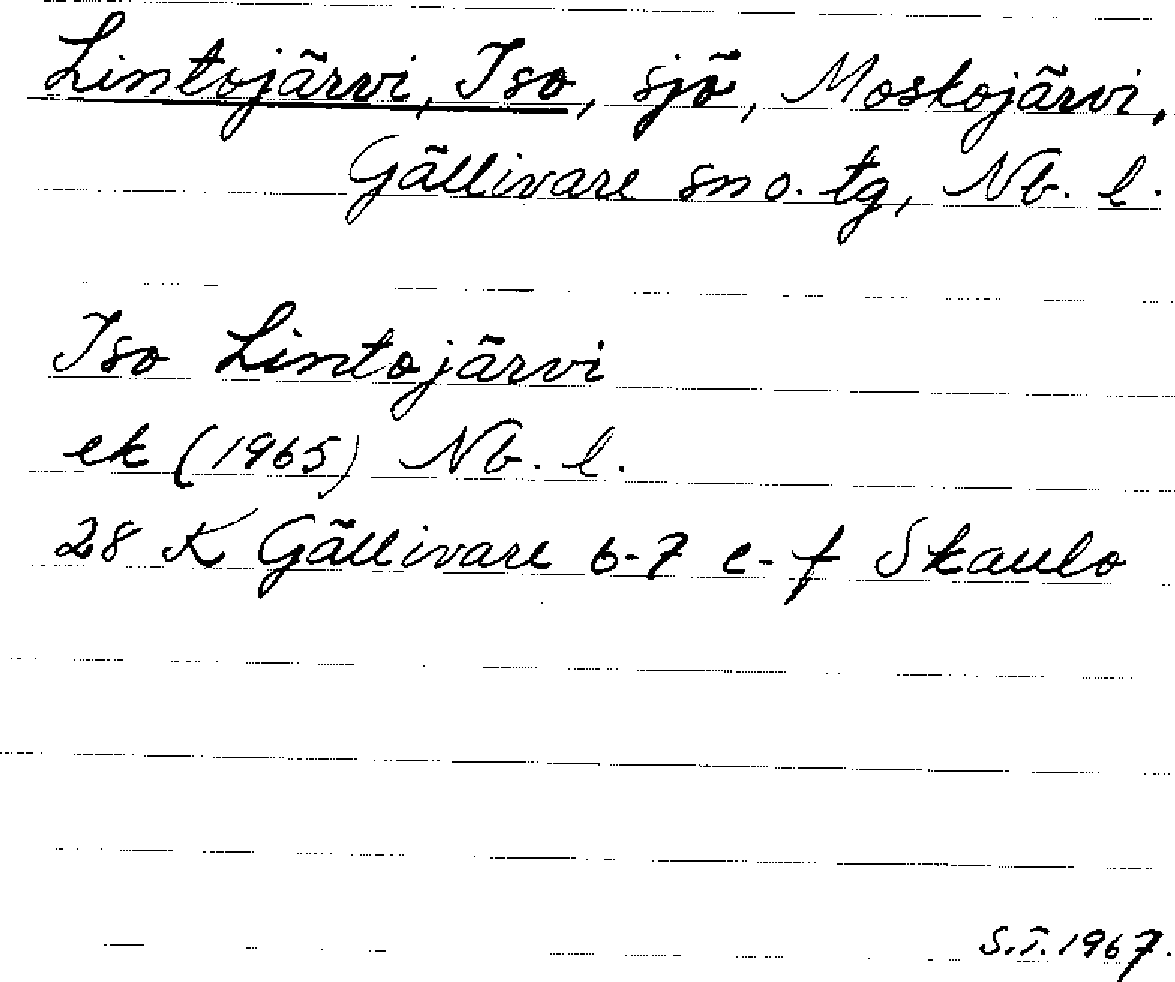 Lintojärvi, Iso, sjö, Moskojärvi,
Gällivare sn o. tg, Nb. l.
Iso Lintojärvi
ek (1965) Nb. l.
28 K Gällivare 6-7 e-f Skaulo
S.T. 1967.